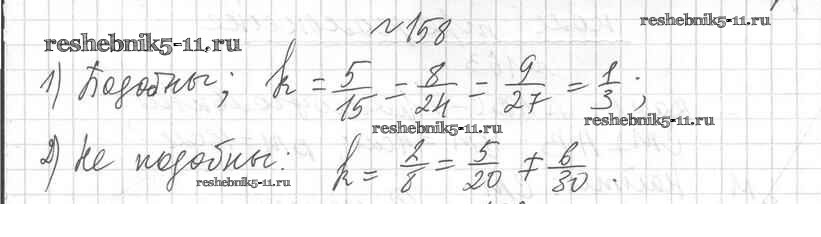 №158
reshebnik5-11.ru
reshebnik5-11.ru
1) Подобны; k = 5/15 = 8/24 = 9/27 = 1/3;
reshebnik5-11.ru
reshebnik5-11.ru
2) Не подобны: k = 2/8 = 5/20 ≠ 6/30.
reshebnik5-11.ru